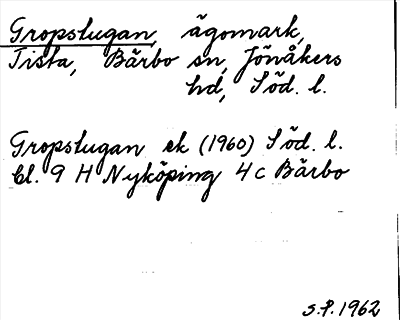 Gropstugan, ägomark,
Tista, Bärbo sn, Jönåkers
hd, Söd. l.
Gropstugan ek (1960) Söd. l.
bl. 9 H Nyköping 4 c Bärbo
S.P. 1962